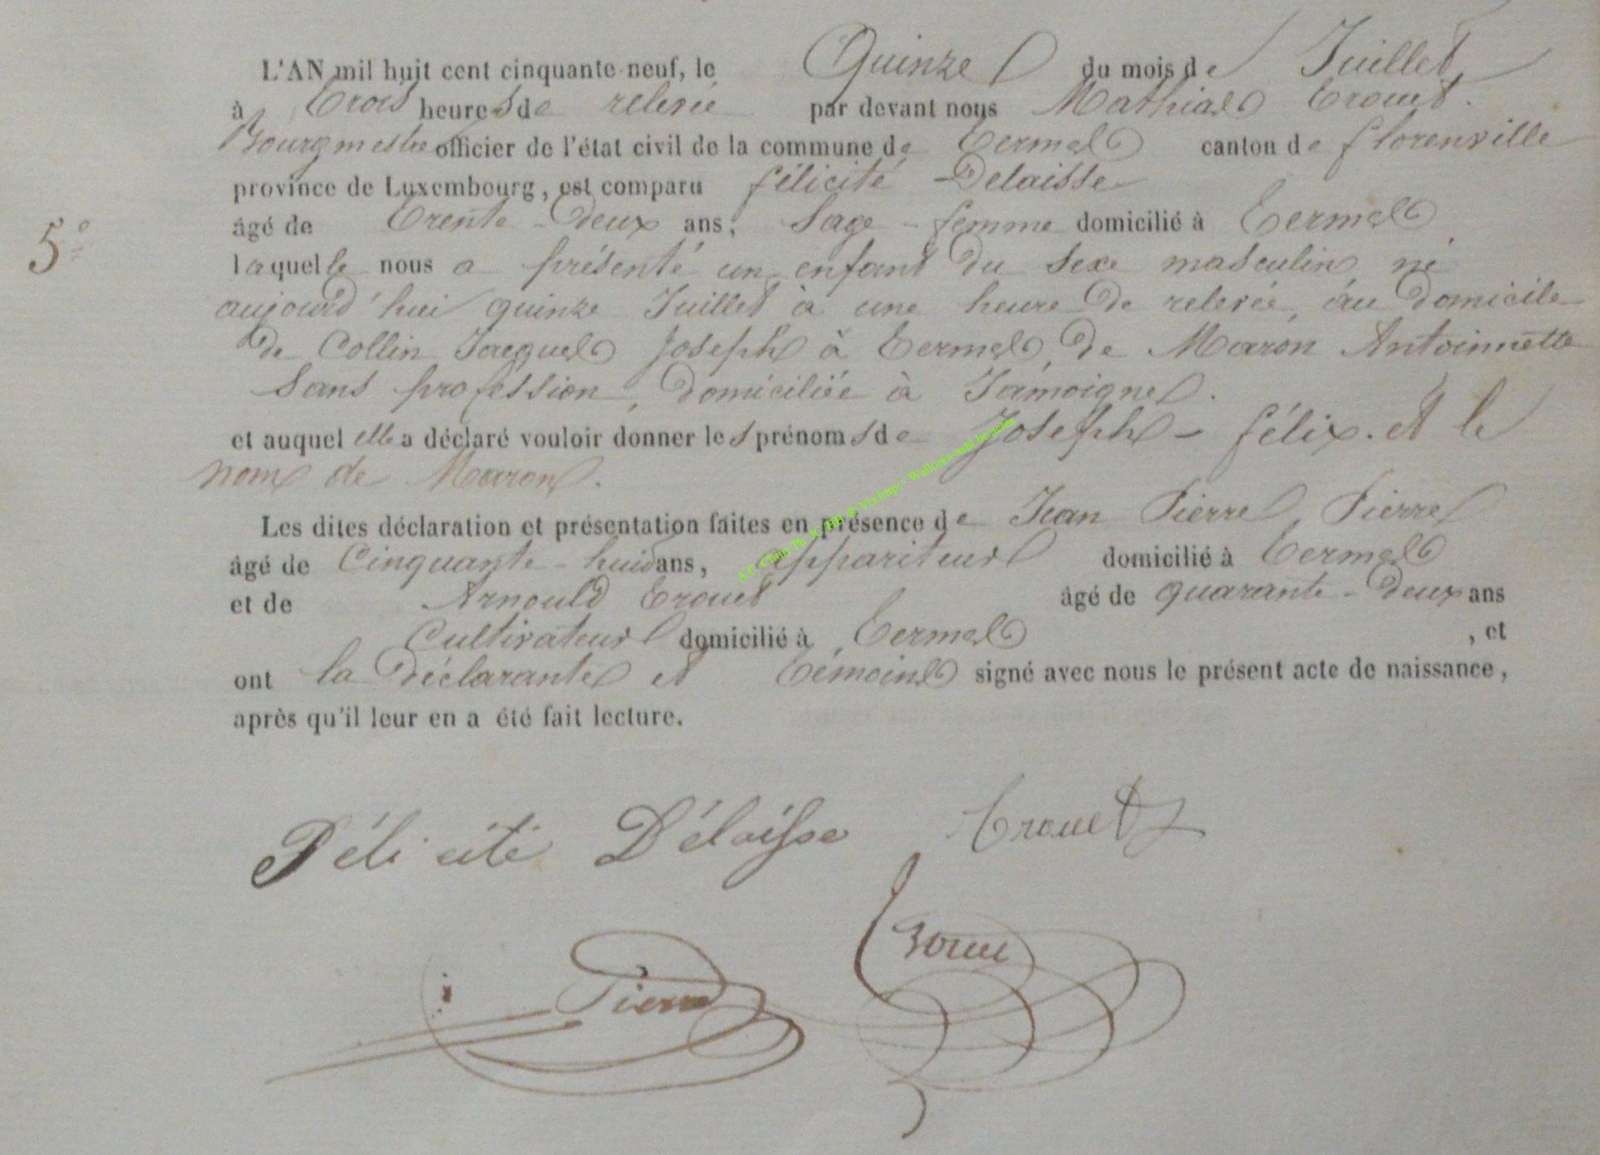 L'AN mil huit cent cinquante-neuf, le Quinze du mois de Juillet
à Trois heures de relevée par devant nous Mathias Trouet.
Bourgmestre officier de l'état civil de la commune de Termes canton de florenville
province de Luxembourg, est comparu félicité Delaisse
âgé de Trente-deux ans, Sage-femme domicilié à Termes
5e
laquelle nous a présenté un enfant du sexe masculin né
aujourd'hui quinze Juillet à une heure de relevée, au domicile
de Collin Jacques Joseph à Termes, de Maron Antoinette
Sans profession, domiciliée à Jamoigne.
et auquel elle a déclaré vouloir donner les prénoms de Joseph-félix. et le
nom de Maron.
Les dites déclaration et présentation faites en présence de Jean Pierre Pierre
âgé de Cinquante-huit ans, appariteur domicilié à Termes
et de Arnould Trouet âgé de quarante-deux ans
Cultivateur domicilié à Termes, et
ont la déclarante et témoins signé avec nous le présent acte de naissance,
après qu'il leur en a été fait lecture.
Félicité Délaisse Trouet
Pierre Trouet